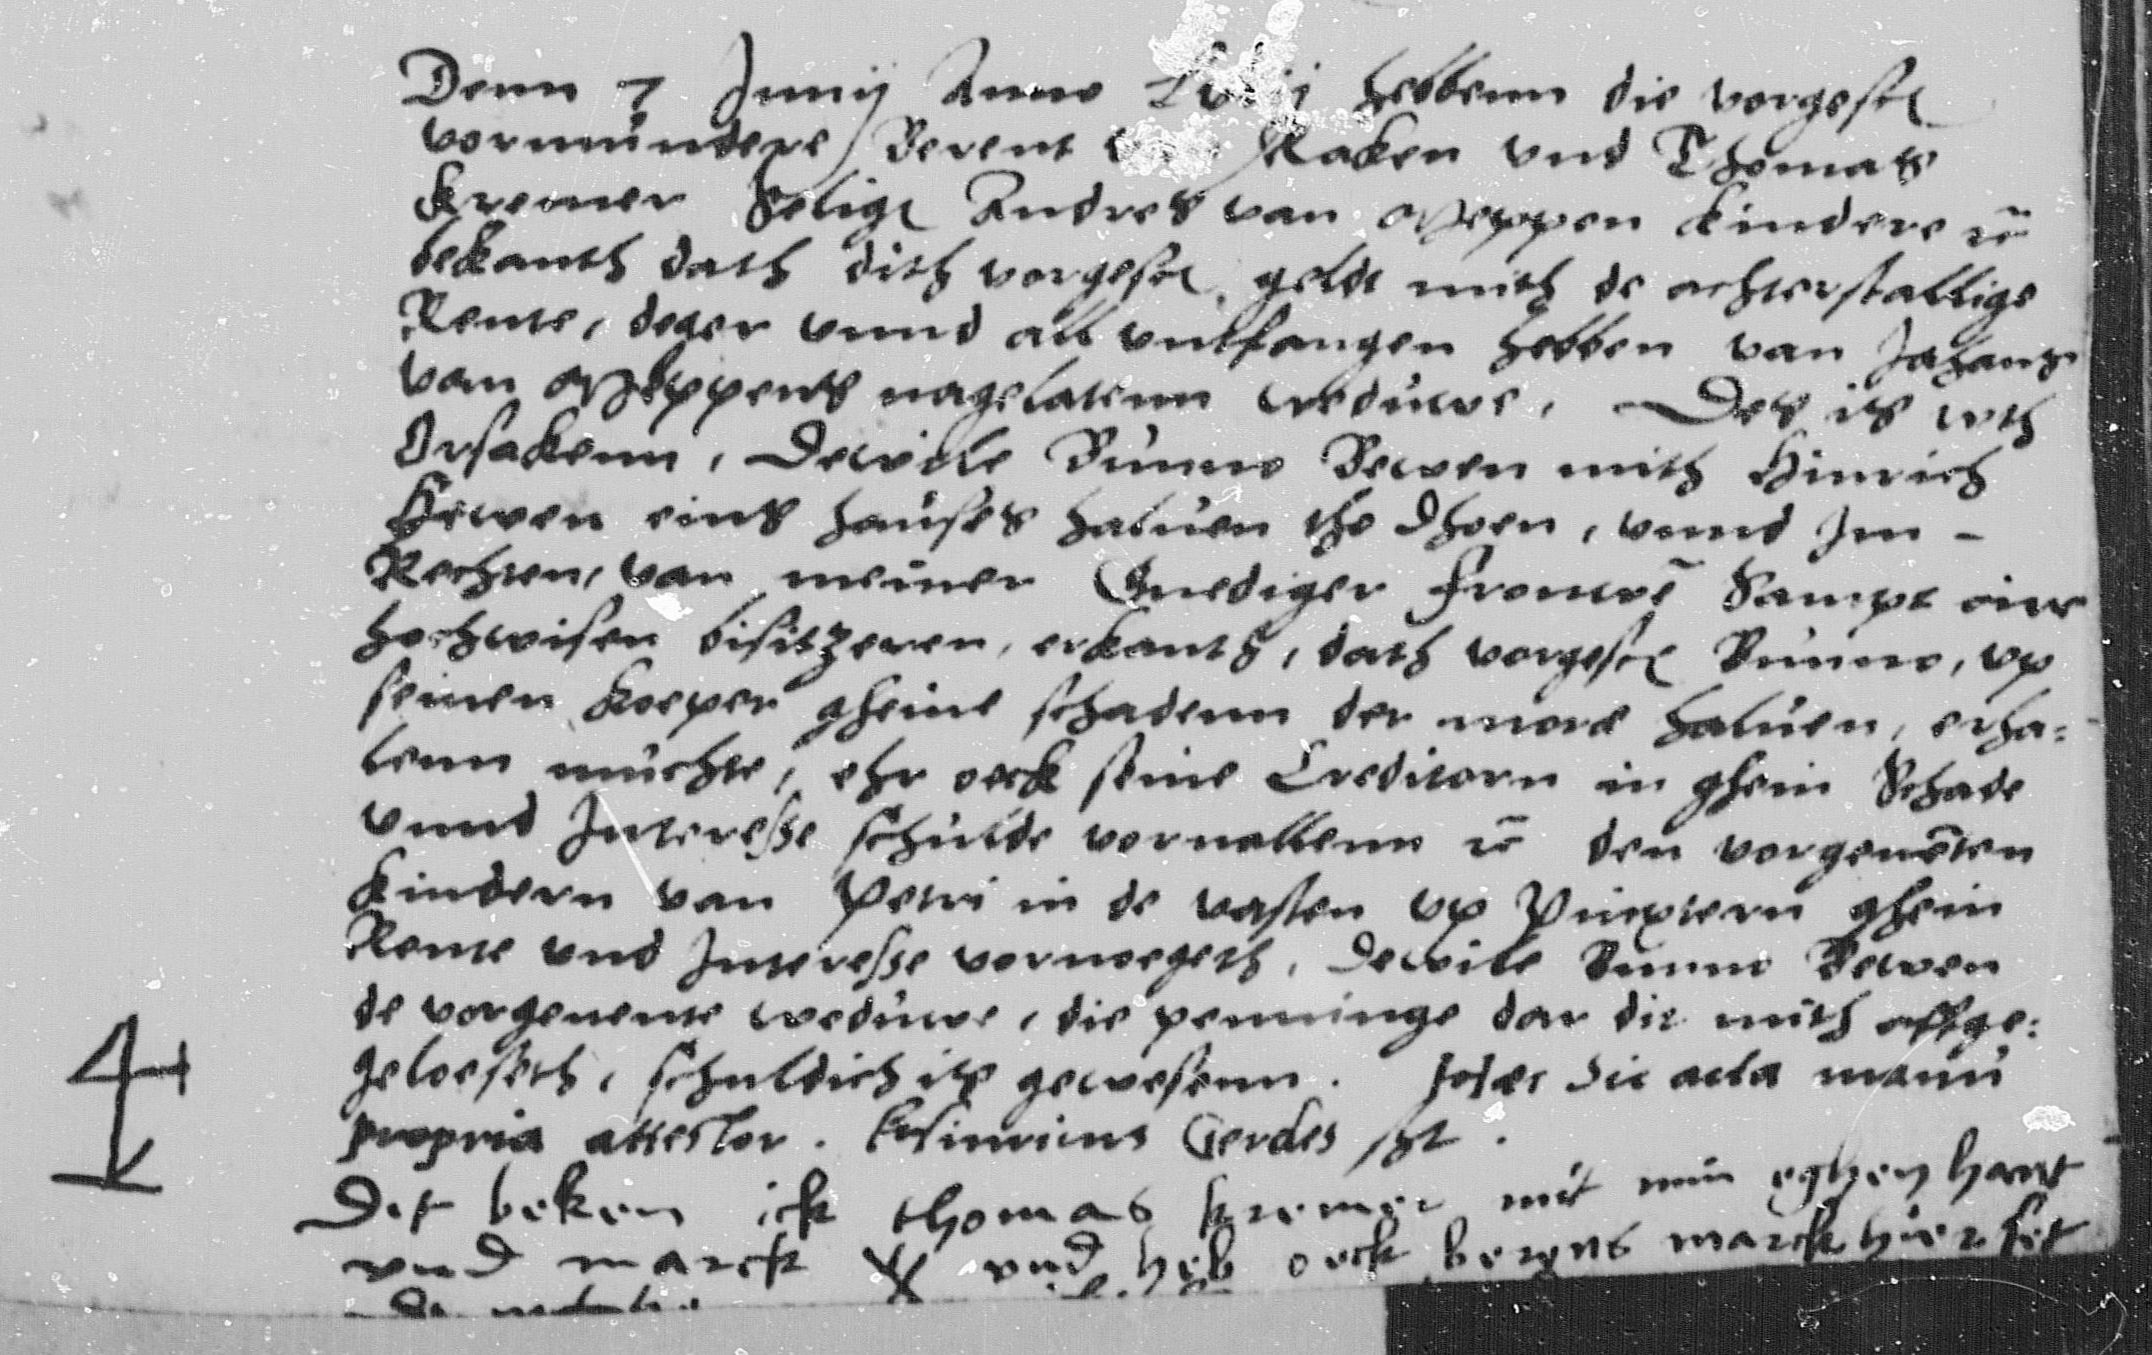 Denn 7 Junij Anno hebbenn die vorgesc
vormundere Berent Raken vnd Thomas
Kremer Selige Andres van Meppen kindere
bekanth dath dith vorgesc. geldt mith de achterstallige
Rente, deger vnnd all vntfangen hebben van Johans
van Meppens nagelatenn weduwe, Des is wth
Orsakenn, Dewile Bunno Bewen mith Hinrich
Hewen eins hauses haluen tho dhoen, vnnd Im -
Rechten, van meiner Gnediger Frouwe Sampt
hochwisen bisitzeren, erkanth, dath vorgesc Bunno, vp
seinen koeper gheine schadenn der more haluen, erha=
lenn muchte, ehr oeck seine Creditorn in ghein Schade
vnnd Interesse schulde vornallenn den vorgenēten
kindern van Petri in de vasten vp Pinxtern ghein
Rente vnd Interesse vornoegeth, dewile Bunno Bewen
de vorgenente weduwe, die penninge dar die mith affge=
geloeseth, schuldich is gewesenn. sic acta manu
propria attestor. Gerdes sst.
Det beken ick thomas kremer mit min eghen hant
vnd marck vnd heb oeck berents marck hier set